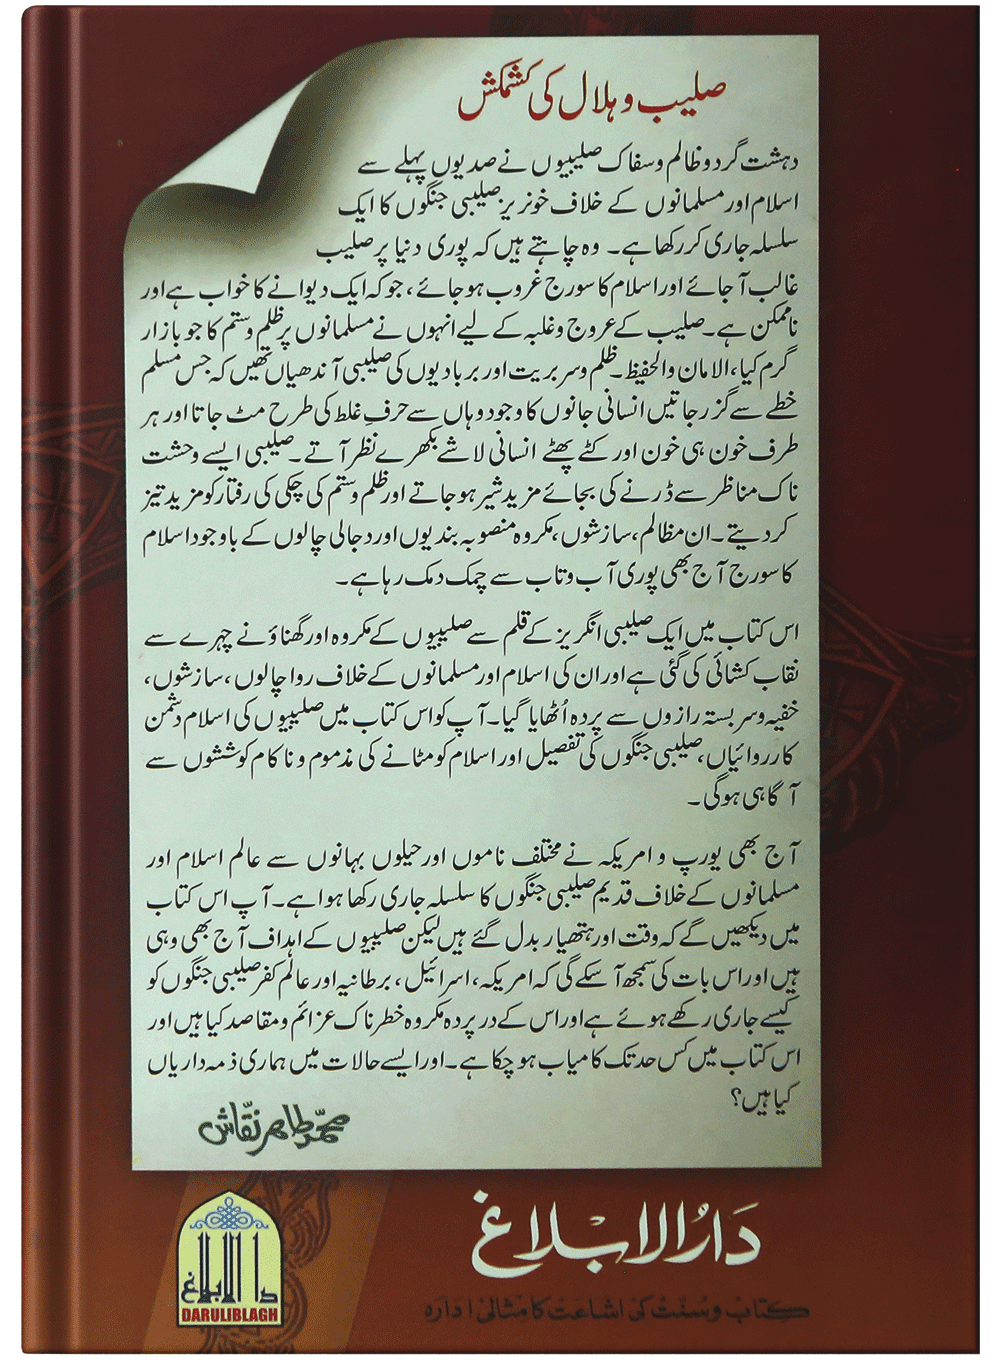 صلیب و ہلال کی کشمکش
دہشت گرد و ظالم و سفاک صلیبیوں نے صدیوں پہلے سے
اسلام اور مسلمانوں کے خلاف خونریز صلیبی جنگوں کا ایک
سلسلہ جاری کر رکھا ہے۔ وہ چاہتے ہیں کہ پوری دنیا پر صلیب
غالب آ جائے اور اسلام کا سورج غروب ہو جائے، جو کہ ایک دیوانے کا خواب ہے اور
ناممکن ہے۔ صلیب کے عروج و غلبہ کے لیے انہوں نے مسلمانوں پر ظلم و ستم کا جو بازار
گرم کیا، الامان والحفیظ۔ ظلم و سربریت اور بربادیوں کی صلیبی آندھیاں تھیں کہ جس مسلم
خطے سے گزر جاتیں انسانی جانوں کا وجود وہاں سے حرفِ غلط کی طرح مٹ جاتا اور ہر
طرف خون ہی خون اور کٹے پھٹے انسانی لاشے بکھرے نظر آتے۔ صلیبی ایسے وحشت
ناک مناظر سے ڈرنے کی بجائے مزید شیر ہو جاتے اور ظلم و ستم کی چکی کی رفتار کو مزید تیز
کر دیتے۔ ان مظالم، سازشوں، مکروہ منصوبہ بندیوں اور دجالی چالوں کے باوجود اسلام
کا سورج آج بھی پوری آب و تاب سے چمک دمک رہا ہے۔
اس کتاب میں ایک صلیبی انگریز کے قلم سے صلیبیوں کے مکروہ اور گھناؤنے چہرے سے
نقاب کشائی کی گئی ہے اور ان کی اسلام اور مسلمانوں کے خلاف روا چالوں، سازشوں،
خفیہ و سربستہ رازوں سے پردہ اُٹھایا گیا۔ آپ کو اس کتاب میں صلیبیوں کی اسلام دشمن
کارروائیاں، صلیبی جنگوں کی تفصیل اور اسلام کو مٹانے کی مذموم و ناکام کوششوں سے
آگاہی ہوگی۔
آج بھی یورپ و امریکہ نے مختلف ناموں اور حیلوں بہانوں سے عالم اسلام اور
مسلمانوں کے خلاف قدیم صلیبی جنگوں کا سلسلہ جاری رکھا ہوا ہے۔ آپ اس کتاب
میں دیکھیں گے کہ وقت اور ہتھیار بدل گئے ہیں لیکن صلیبیوں کے اہداف آج بھی وہی
ہیں اور اس بات کی سمجھ آ سکے گی کہ امریکہ، اسرائیل، برطانیہ اور عالم کفر صلیبی جنگوں کو
کیسے جاری رکھے ہوئے ہے اور اس کے در پردہ مکروہ خطرناک عزائم و مقاصد کیا ہیں اور
اس کتاب میں کس حد تک کامیاب ہو چکا ہے۔ اور ایسے حالات میں ہماری ذمہ داریاں
کیا ہیں؟
محمد طاہر نقاش
دَارُالابلاغ
دارالابلاغ
DARULIBLAGH
کتاب و سنت کی اشاعت کا مثالی ادارہ